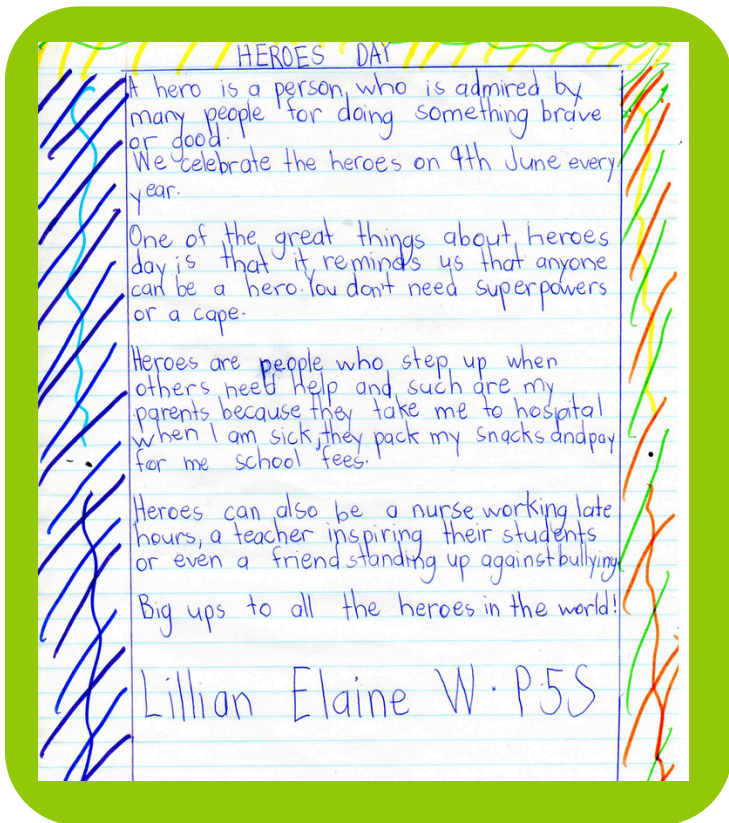 HEROES DAY
A hero is a person, who is admired by
many people for doing something brave
or good.
We celebrate the heroes on 9th June every
year.
One of the great things about heroes
day is that it reminds us that anyone
can be a hero. You don't need superpowers
or a cape.
Heroes are people who step up when
others need help and such are my
parents because they take me to hospital
when I am sick, they pack my snacks and pay
for me school fees.
Heroes can also be a nurse working late
hours, a teacher inspiring their students
or even a friend standing up against bullying
Big ups to all the heroes in the world!
Lillian Elaine W. P.5S